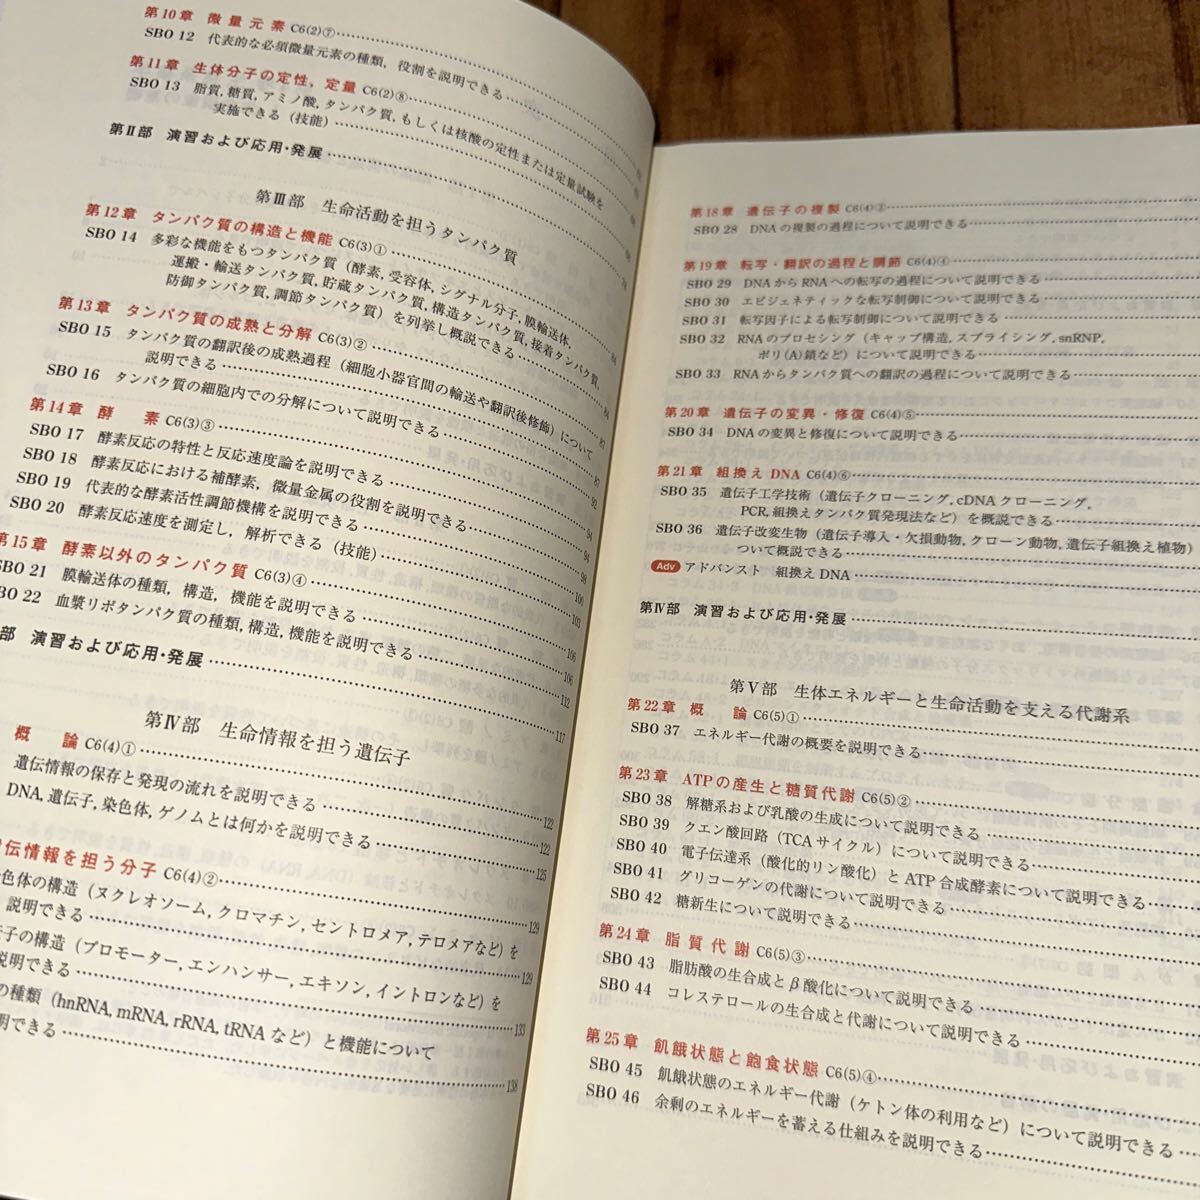 第10章 微量元素 C6(2)⑦
SBO 12 代表的な必須微量元素の種類，役割を説明できる
第11章 生体分子の定性，定量 C6(2)⑧
SBO 13 脂質，糖質，アミノ酸，タンパク質，もしくは核酸の定性または定量試験を
実施できる（技能）
第Ⅱ部 演習および応用・発展
第Ⅲ部 生命活動を担うタンパク質
第12章 タンパク質の構造と機能 C6(3)①
SBO 14 多彩な機能をもつタンパク質（酵素，受容体，シグナル分子，膜輸送体，
運搬・輸送タンパク質，貯蔵タンパク質，構造タンパク質，接着タンパク質，
防御タンパク質，調節タンパク質）を列挙し概説できる
第13章 タンパク質の成熟と分解 C6(3)②
SBO 15 タンパク質の翻訳後の成熟過程（細胞小器官間の輸送や翻訳後修飾）について
説明できる
SBO 16 タンパク質の細胞内での分解について説明できる 87
第14章 酵素 C6(3)③
SBO 17 酵素反応の特性と反応速度論を説明できる
SBO 18 酵素反応における補酵素，微量金属の役割を説明できる
SBO 19 代表的な酵素活性調節機構を説明できる 94
SBO 20 酵素反応速度を測定し，解析できる（技能） 98
第15章 酵素以外のタンパク質 C6(3)④ 100
SBO 21 膜輸送体の種類，構造，機能を説明できる 103
BO 22 血漿リポタンパク質の種類，構造，機能を説明できる 106
部 演習および応用・発展 112
第Ⅳ部 生命情報を担う遺伝子 117
概論 C6(4)①
遺伝情報の保存と発現の流れを説明できる 122
DNA，遺伝子，染色体，ゲノムとは何かを説明できる 122
伝情報を担う分子 C6(4)② 125
色体の構造（ヌクレオソーム，クロマチン，セントロメア，テロメアなど）を 129
説明できる
子の構造（プロモーター，エンハンサー，エキソン，イントロンなど）を 129
説明できる 133
の種類（hnRNA, mRNA, rRNA, tRNA など）と機能について
明できる 138
第18章 遺伝子の複製 C6(4)③
SBO 28 DNAの複製の過程について説明できる
第19章 転写・翻訳の過程と調節 C6(4)④
SBO 29 DNAからRNAへの転写の過程について説明できる
SBO 30 エピジェネティックな転写制御について説明できる
SBO 31 転写因子による転写制御について説明できる
SBO 32 RNAのプロセシング（キャップ構造，スプライシング，snRNP，
ポリ(A)鎖など）について説明できる
SBO 33 RNAからタンパク質への翻訳の過程について説明できる
第20章 遺伝子の変異・修復 C6(4)⑤
SBO 34 DNAの変異と修復について説明できる
第21章 組換えDNA C6(4)⑥
SBO 35 遺伝子工学技術（遺伝子クローニング，cDNAクローニング，
PCR，組換えタンパク質発現法など）を概説できる
SBO 36 遺伝子改変生物（遺伝子導入・欠損動物，クローン動物，遺伝子組換え植物）
ついて概説できる
Adv アドバンスト 組換えDNA
第Ⅳ部 演習および応用・発展
第Ⅴ部 生体エネルギーと生命活動を支える代謝系
第22章 概論 C6(5)①
SBO 37 エネルギー代謝の概要を説明できる
第23章 ATPの産生と糖質代謝 C6(5)②
SBO 38 解糖系および乳酸の生成について説明できる
SBO 39 クエン酸回路（TCAサイクル）について説明できる
SBO 40 電子伝達系（酸化的リン酸化）とATP合成酵素について説明できる
SBO 41 グリコーゲンの代謝について説明できる
SBO 42 糖新生について説明できる
第24章 脂質代謝 C6(5)③
SBO 43 脂肪酸の生合成とβ酸化について説明できる
SBO 44 コレステロールの生合成と代謝について説明できる
第25章 飢餓状態と飽食状態 C6(5)④
SBO 45 飢餓状態のエネルギー代謝（ケトン体の利用など）について説明できる
SBO 46 余剰のエネルギーを蓄える仕組みを説明できる